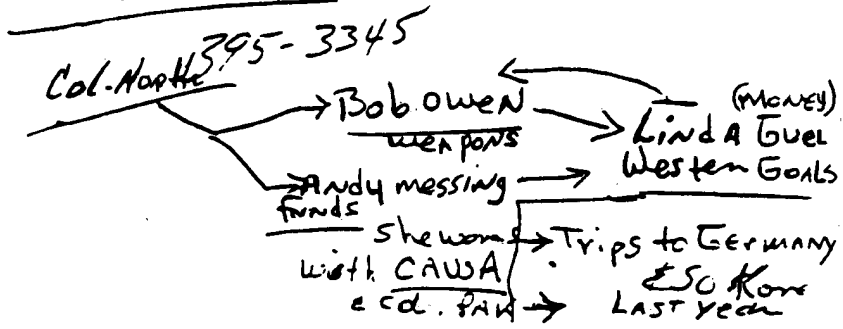 Col. North 395-3345
Bob Owen
weapons
(money)
Linda Guel
Western Goals
Andy messing
funds
She works
with CAUSA
& Col. PAK
Trips to Germany
& So Korea
LAST year